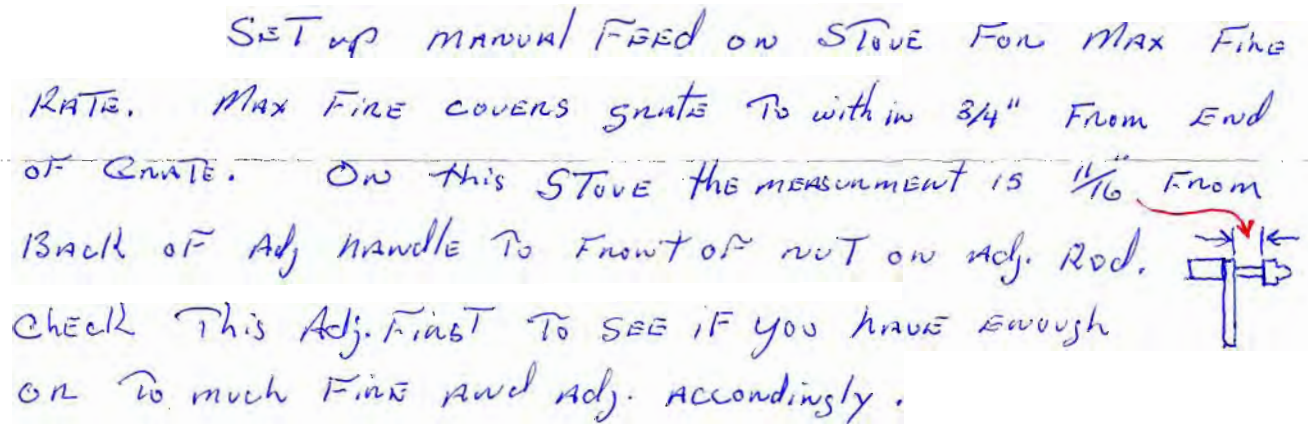 SET up MANUAL FEED ON STOVE FOR MAX FIRE
RATE. MAX FIRE COVERS GRATE TO within 3/4" FROM END
OF GRATE. ON this STOVE the MEASURMENT IS 11/16" FROM
BACK OF Adj HANdlE TO FRONT OF NUT ON Adj. Rod.
ChECK This Adj. FIRST TO SEE iF you HAVE ENOUGH
OR To much FIRE AND Adj. ACCORdingly.